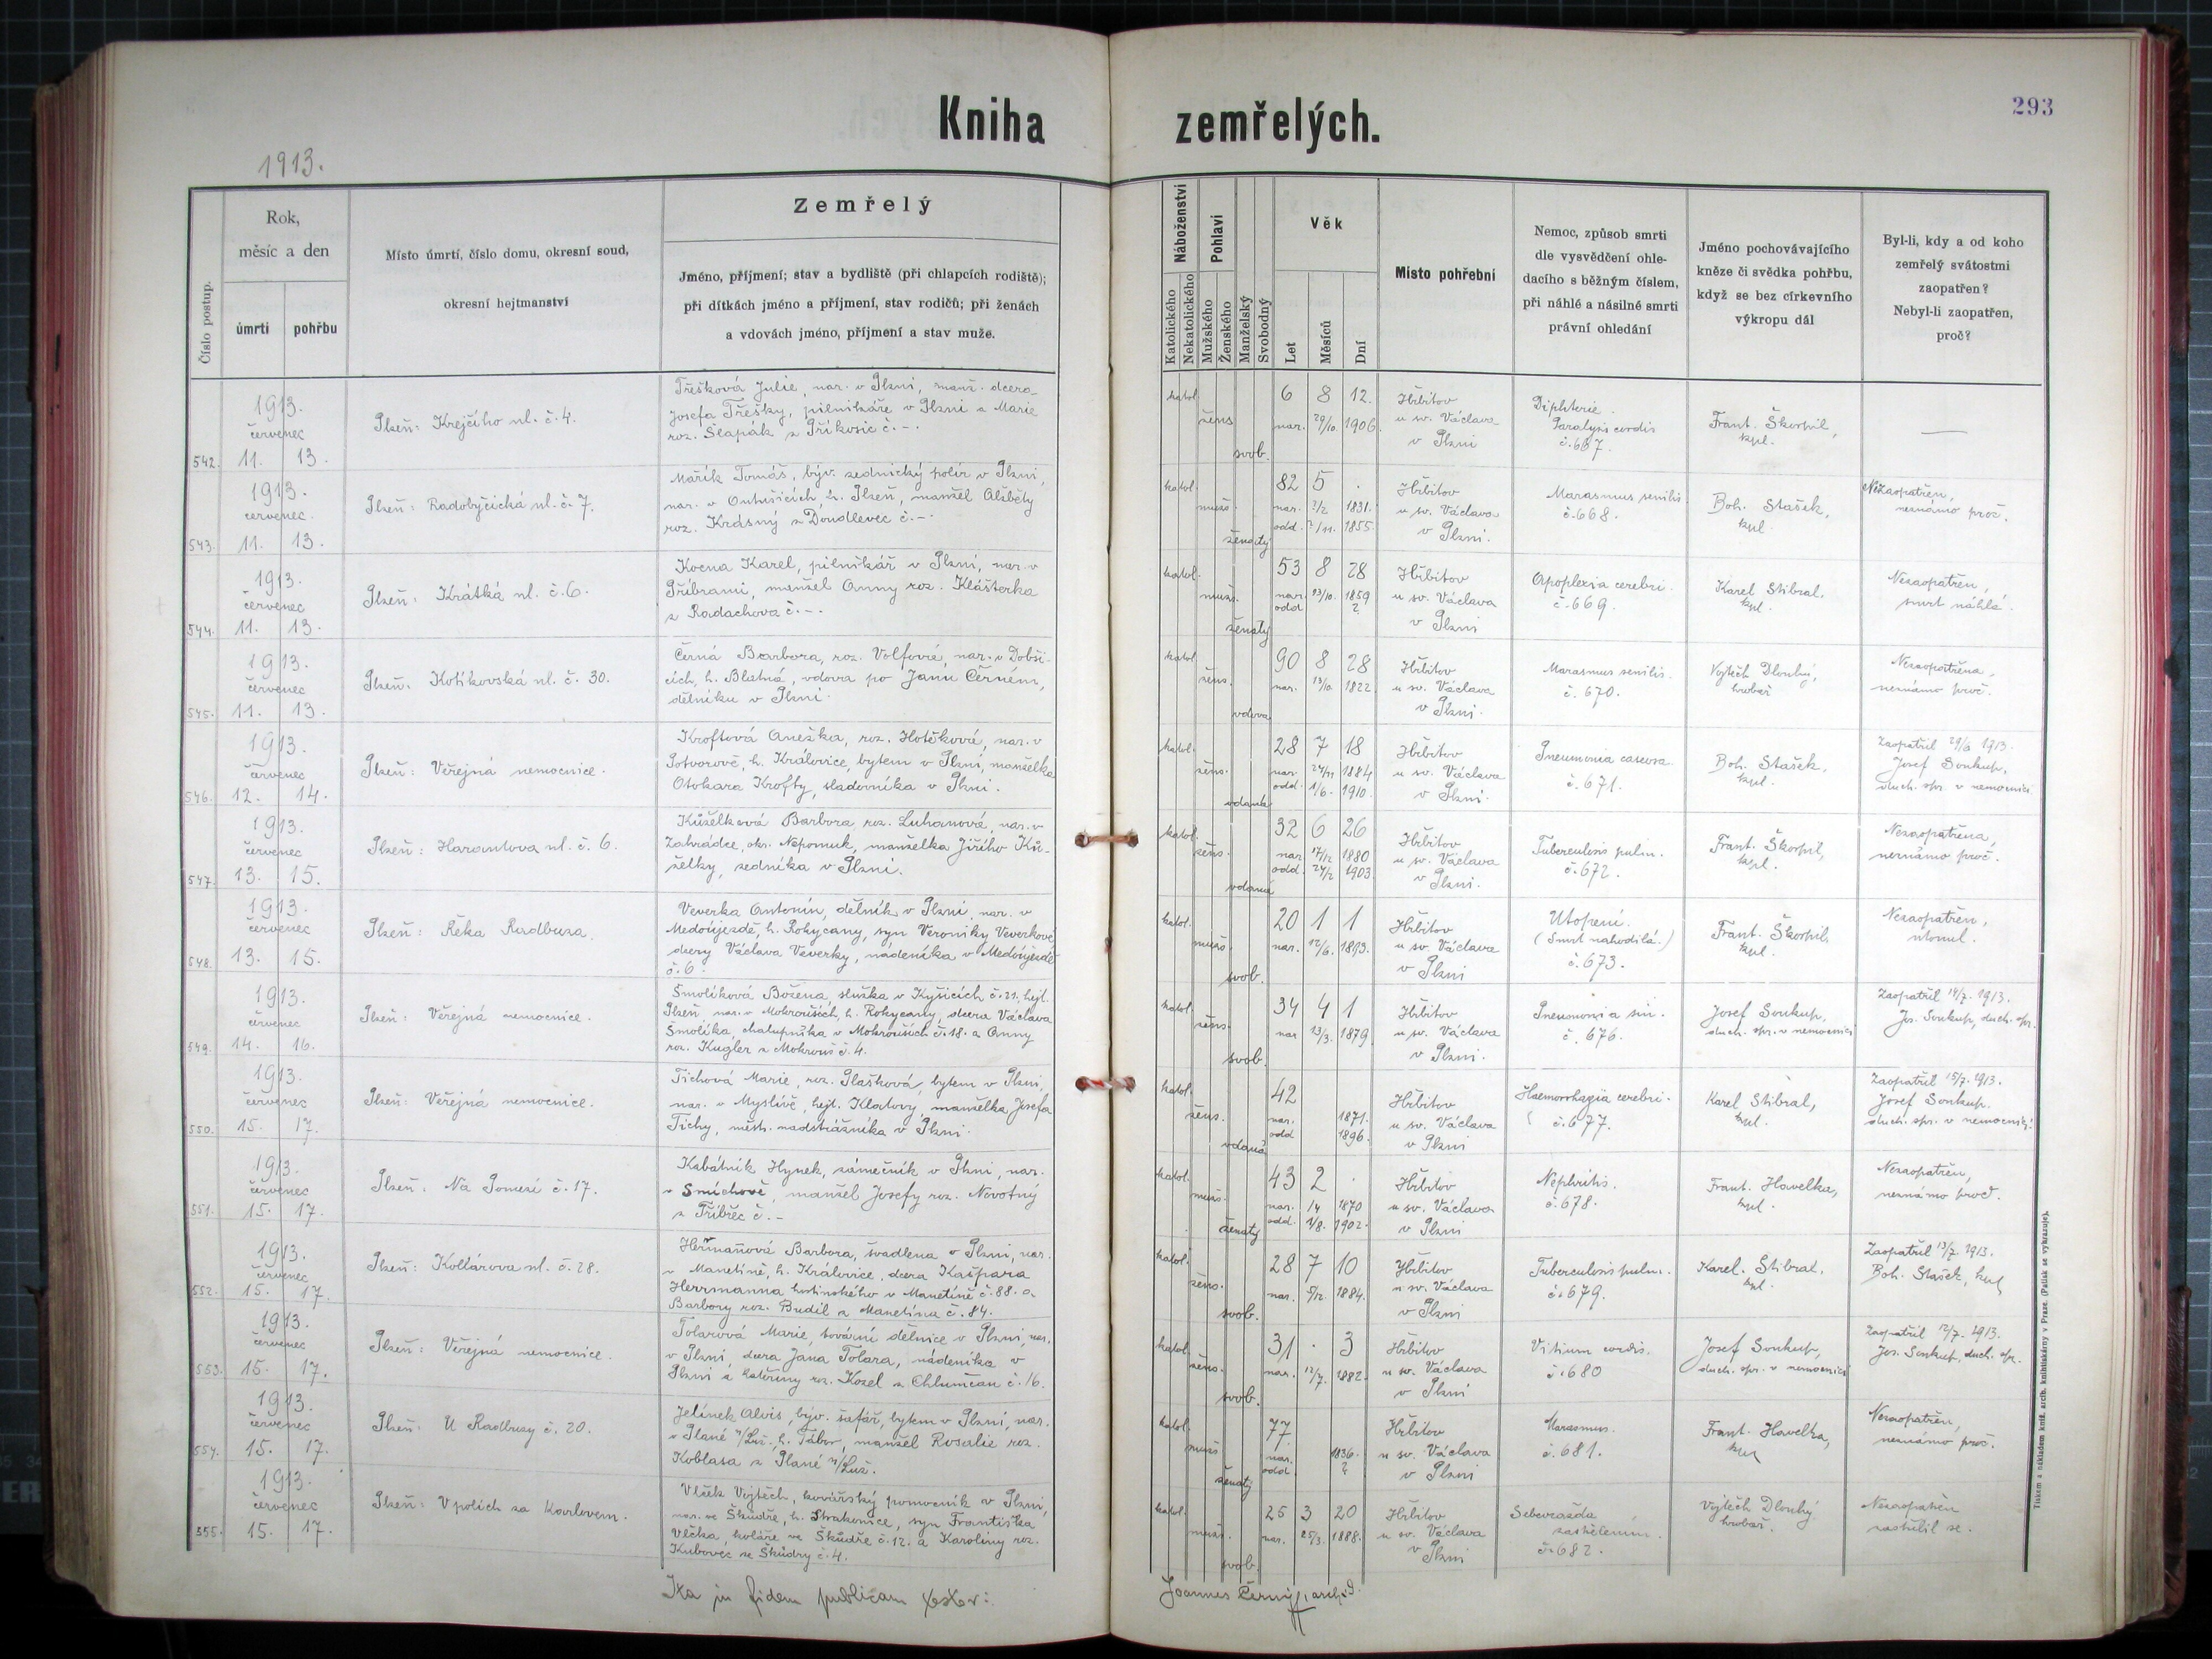 Kniha zemřelých.
293
1913.
Číslo postup.
Rok,
měsíc a den
úmrtí
pohřbu
Místo úmrtí, číslo domu, okresní soud,
okresní hejtmanství
Zemřelý
Jméno, příjmení; stav a bydliště (při chlapcích rodiště);
při dítkách jméno a příjmení, stav rodičů; při ženách
a vdovách jméno, příjmení a stav muže.
Náboženství
Katolického
Nekatolického
Pohlaví
Mužského
Ženského
Manželský
Svobodný
Věk
Let
Měsíců
Dní
Místo pohřební
Nemoc, způsob smrti
dle vysvědčení ohle-
dacího s běžným číslem,
při náhlé a násilné smrti
právní ohledání
Jméno pochovávajícího
kněze či svědka pohřbu,
když se bez církevního
výkropu dál
Byl-li, kdy a od koho
zemřelý svátostmi
zaopatřen?
Nebyl-li zaopatřen,
proč?
542. 1913. červenec 11. 13.
Plzeň: Krejčího ul. č. 4.
Třešková Julie, nar. v Plzni, manž. dcera
Josefa Třešky, pilnikáře v Plzni a Marie
roz. Šlapák z Příkosic č. -.
katol. žens. svob.
6 8 12.
nar. 29/10. 1906.
Hřbitov
u sv. Václava
v Plzni
Diphterie.
Paralysis cordis
č. 667.
Frant. Škorpil,
kpl.
—
543. 1913. červenec. 11. 13.
Plzeň: Radobyčická ul. č. 7.
Mařík Tomáš, býv. zednický polír v Plzni,
nar. v h. Plzeň, manžel Alžběty
roz. Krásný z Doudlevec č. -.
katol. mužs. ženatý
82 5 .
nar. ?/2 1831.
odd. ?/11. 1855.
Hřbitov
u sv. Václava
v Plzni.
Marasmus senilis.
č. 668.
Boh. Stašek,
kpl
Nezaopatřen,
neznámo proč.
544. 1913. červenec 11. 13.
Plzeň: Krátká ul. č. 6.
Kocna Karel, pilnikář v Plzni, nar. v
Příbrami, manžel Anny roz. Klášterka
z Radachova č. -.
katol. mužs. ženatý
53 8 28
nar. 13/10. 1859
odd ?
Hřbitov
u sv. Václava
v Plzni
Apoplexia cerebri.
č. 669.
Karel Stibral,
kpl.
Nezaopatřen,
smrt náhlá.
545. 1913. červenec 11. 13.
Plzeň. Kotíkovská ul. č. 30.
Černá Barbora, roz. Volfová, nar. v Dobší-
cích, h. Blatná, vdova po Janu Černém,
dělníku v Plzni.
katol. žens. vdova
90 8 28
nar. 13/10 1822
Hřbitov
u sv. Václava
v Plzni.
Marasmus senilis.
č. 670.
Vojtěch Dlouhý,
hrobař
Nezaopatřena,
neznámo proč.
546. 1913. červenec 12. 14.
Plzeň: Veřejná nemocnice.
Kroftová Anežka, roz. Hotěková, nar. v
Potvorově, h. Královice, bytem v Plzni, manželka
Otokara Krofty, sladovníka v Plzni.
katol. žens. vdaná
28 7 18
nar. 24/11 1884
odd. 1/6. 1910.
Hřbitov
u sv. Václava
v Plzni.
Pneumonia caseosa.
č. 671.
Boh. Stašek,
kpl.
Zaopatřil 29/6 1913.
Josef Soukup,
duch. spr. v nemocnici
547. 1913. červenec 13. 15.
Plzeň: Harantova ul. č. 6.
Kůželková Barbora, roz. Luhanová, nar. v
Zahrádce, okr. Nepomuk, manželka Jiřího Ků-
želky, zedníka v Plzni.
katol. žens. vdaná
32 6 26
nar. 17/12 1880
odd. 24/2 1903
Hřbitov
u sv. Václava
v Plzni.
Tuberculosis pulm.
č. 672.
Frant. Škorpil,
kpl.
Nezaopatřena,
neznámo proč.
548. 1913. červenec 13. 15.
Plzeň: Řeka Radbuza.
Veverka Antonín, dělník v Plzni, nar. v
Medoújezdě, h. Rokycany, syn Veroniky Veverkové,
dcery Václava Veverky, nádeníka v Medoújezdě
č. 6.
katol. mužs. svob.
20 1 1
nar. 12/6. 1893.
Hřbitov
u sv. Václava
v Plzni
Utopení.
(Smrt nahodilá.)
č. 673.
Frant. Škorpil,
kpl.
Nezaopatřen,
utonul.
549. 1913. červenec 14. 16.
Plzeň: Veřejná nemocnice.
Smolíková Božena, služka v Kyšicích č. 21, hejt.
Plzeň, nar. v Mokrouších, h. Rokycany, dcera Václava
Smolíka, chalupníka v Mokrouších č. 18. a Anny
roz. Kugler z Mokrouš č. 4.
katol. žens. svob.
34 4 1
nar 13/3. 1879.
Hřbitov
u sv. Václava
v Plzni.
Pneumonia sin.
č. 676.
Josef Soukup,
duch. spr. v nemocnici
Zaopatřil 14/7. 1913.
Jos. Soukup, duch. spr.
550. 1913. červenec 15. 17.
Plzeň: Veřejná nemocnice.
Tichová Marie, roz. Plašková, bytem v Plzni,
nar. v Myslívě, hejt. Klatovy, manželka Josefa
Tichy, měst. nadstrážníka v Plzni.
katol. žens. vdaná
42
nar. 1871.
odd 1896.
Hřbitov
u sv. Václava
v Plzni
Haemorrhagia cerebri.
č. 677.
Karel Stibral,
kpl.
Zaopatřil 15/7. 1913.
Josef Soukup.
duch. spr. v nemocnici.
551. 1913. červenec 15. 17.
Plzeň: Na Pomezí č. 17.
Kabátník Hynek, zámečník v Plzni, nar.
v Smíchově, manžel Josefy roz. Novotný
z Tříbřec č. -
katol. mužs. ženatý
43 2 .
nar. /4 1870
odd. 1/8. 1902.
Hřbitov
u sv. Václava
v Plzni
Nephritis.
č. 678.
Frant. Havelka,
kpl.
Nezaopatřen,
neznámo proč.
552. 1913. červenec 15. 17.
Plzeň: Kollárova ul. č. 28.
Heřmaňová Barbora, švadlena v Plzni, nar.
v Manetíně, h. Královice, dcera Kašpara
Herrmanna hostinského v Manetíně č. 88. a
Barbory roz. Budil z Manetína č. 84.
katol. žens. svob.
28 7 10
nar. 5/12. 1884.
Hřbitov
u sv. Václava
v Plzni
Tuberculosis pulm.
č. 679.
Karel. Stibral,
kpl.
Zaopatřil 13/7. 1913.
Boh. Stašek, kpl
553. 1913. červenec 15. 17.
Plzeň: Veřejná nemocnice.
Tolarová Marie, tovární dělnice v Plzni, nar.
v Plzni, dcera Jana Tolara, nádeníka v
Plzni a Kateřiny roz. Kozel z Chlumčan č. 16.
katol. žens. svob.
31 . 3
nar. 12/7. 1882.
Hřbitov
u sv. Václava
v Plzni
Vitium cordis.
č. 680
Josef Soukup,
duch. spr. v nemocnici
Zaopatřil 12/7. 1913.
Jos. Soukup, duch. spr.
554. 1913. červenec 15. 17.
Plzeň: U Radbuzy č. 20.
Jelínek Alois, býv. šafář, bytem v Plzni, nar.
v Plané n/Luž., h. Tábor, manžel Rosalie roz.
Koblasa z Plané n/Luž.
katol. mužs. ženatý
77
nar. 1836.
odd. ?
Hřbitov
u sv. Václava
v Plzni
Marasmus.
č. 681.
Frant. Havelka,
kpl
Nezaopatřen,
neznámo proč.
555. 1913. červenec 15. 17.
Plzeň: V polích za Karlovem.
Vlček Vojtěch, kovářský pomocník v Plzni,
nar. ve Škůdře, h. Strakonice, syn Františka
Vlčka koláře ve Škůdře č. 12. a Karoliny roz.
Kubovéc ze Škůdry č. 4.
katol. mužs. svob.
25 3 20
nar. 25/3. 1888.
Hřbitov
u sv. Václava
v Plzni
Sebevražda
zastřelením.
č. 682.
Vojtěch Dlouhý
hrobař.
Nezaopatřen
zastřelil se.
Ita in fidem publicam testor:
Joannes Černý, archid.
Tiskem a nákladem kníž. arcib. knihtiskárny v Praze. (Patisk se vyhrazuje).